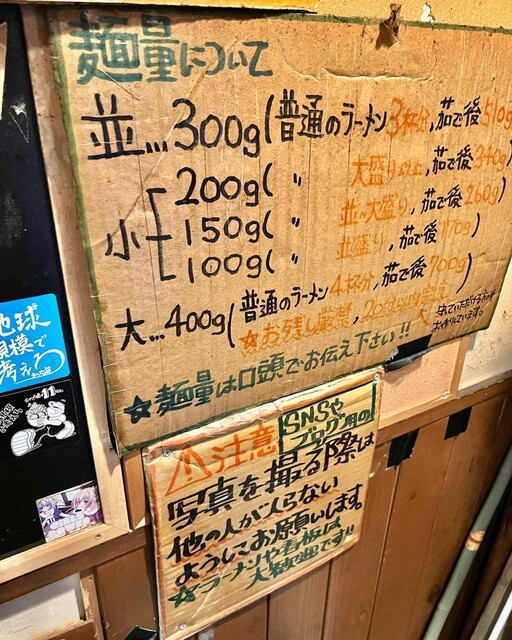 麺量について
並…300g(普通のラーメン3杯分,茹で後510g
小
200g( 〃 大盛り以上,茹で後340g)
150g( 〃 並〜大盛り,茹で後260g)
100g( 〃 並盛り,茹で後170g)
大…400g(普通のラーメン4杯分,茹で後700g)
☆お残し厳禁,20分以内
☆麺量は口頭でお伝え下さい!!
⚠注意 SNSや
ブログ用の
写真を撮る際は
他の人が入らない
ようにお願いします。
☆ラーメンや看板は
大歓迎です!!
地球
規模で
考えろ